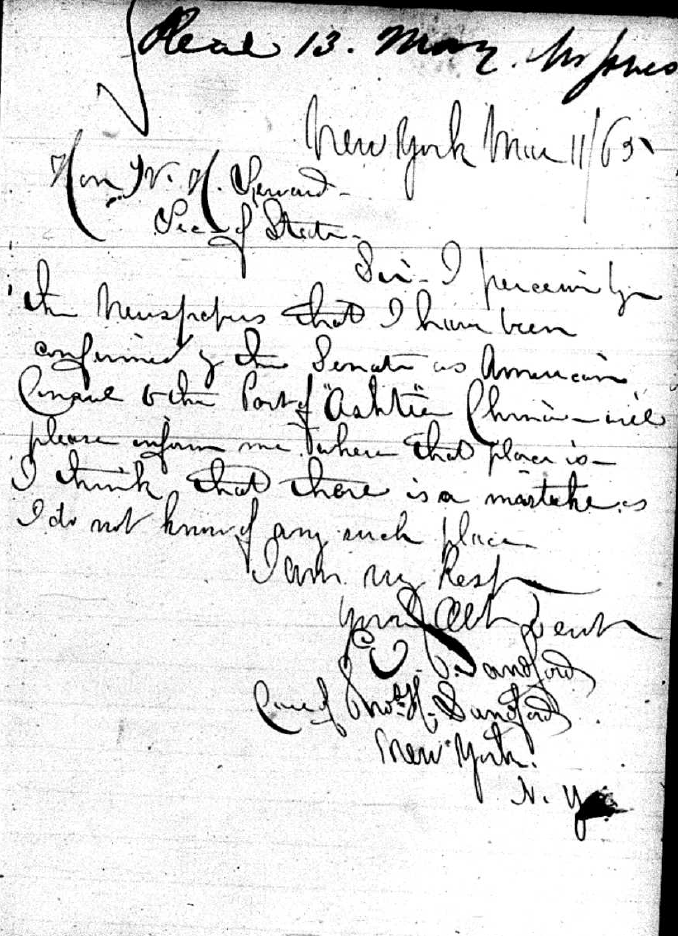 Recd 13. May. Mr Jones
New York Mar 11/65
Hon W. H. Seward
Sec of State
Sir - I perceive by
the Newspapers that I have been
confirmed by the Senate as American
Consul to the Port of "Ashtie China - will
please inform me where that place is -
I think that there is a mistake as
I do not know of any such place
I am very Resp
your Obt Servt
E. C. Sandford
Care of Thos. H. Sandford
New York.
N. Y